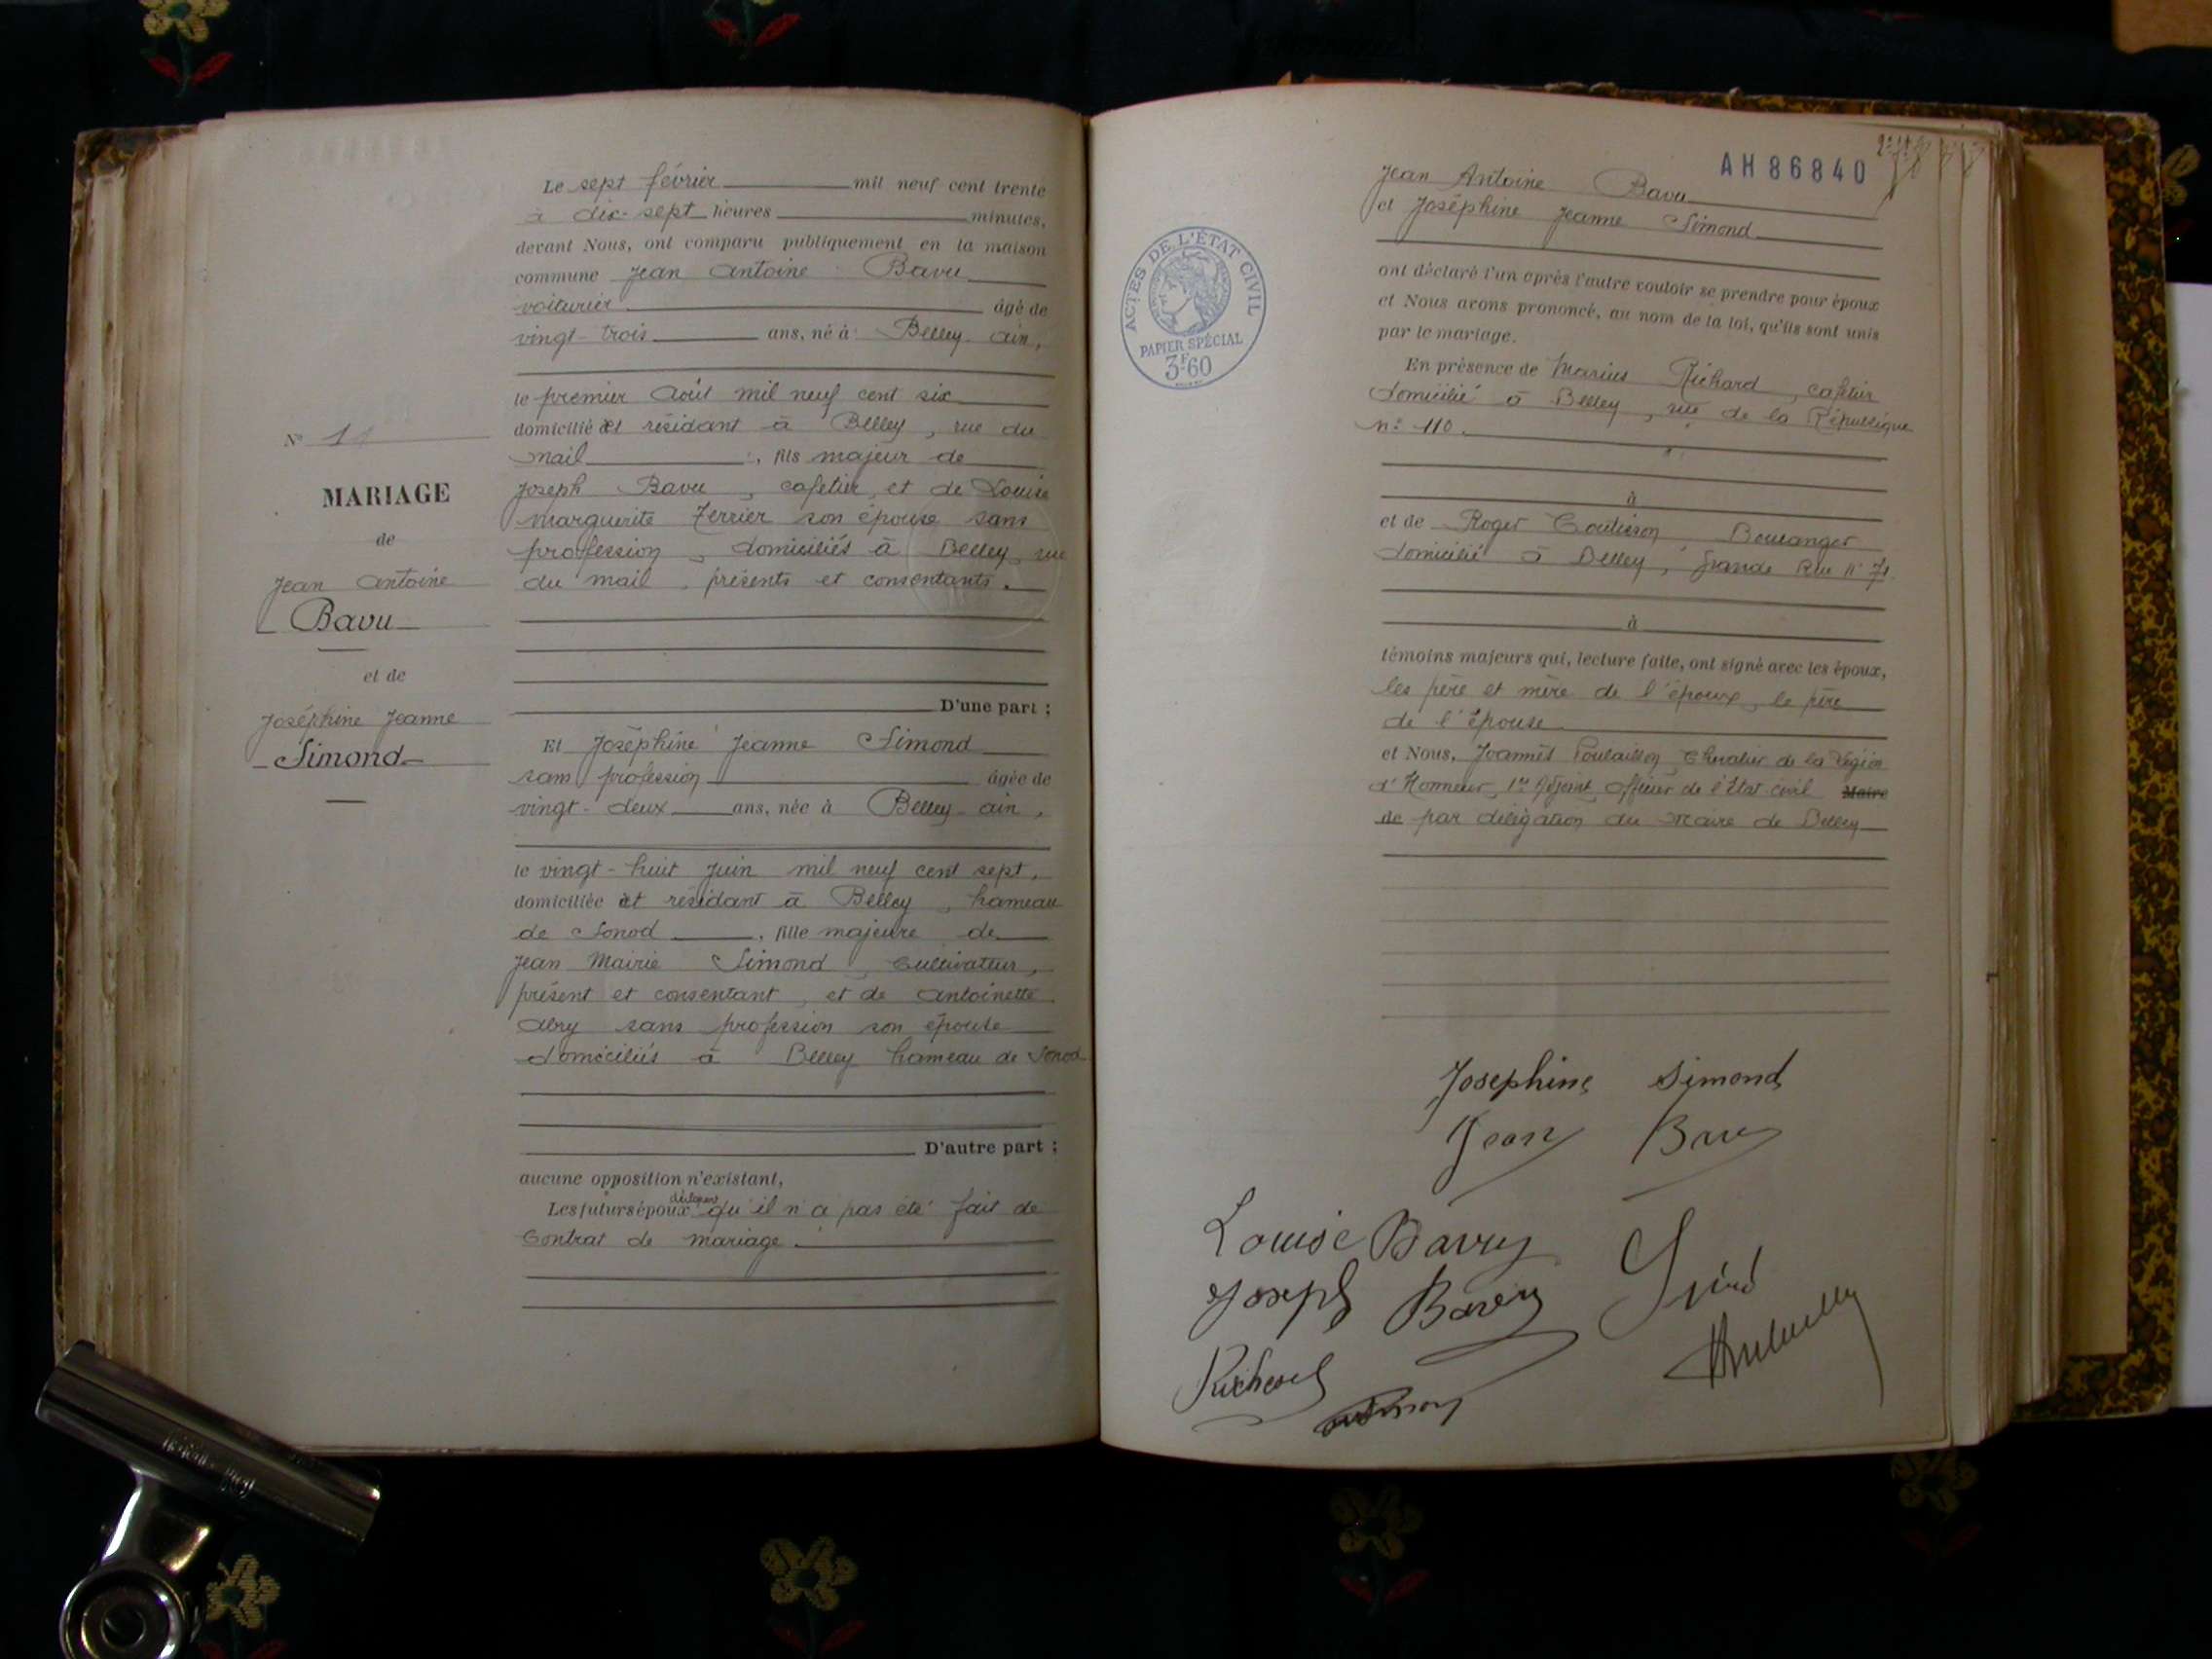 Le sept février mil neuf cent trente
à dix-sept heures minutes,
devant Nous, ont comparu publiquement en la maison
commune Jean Antoine Bavu
voiturier âgé de
vingt-trois ans, né à Belley Ain,
le premier Août mil neuf cent six
domicilié et résidant à Belley, rue du
Mail, fils majeur de
Joseph Bavu, cafetier, et de Louise
Marguerite Terrier son épouse sans
profession, domiciliés à Belley, rue
du Mail, présents et consentants.
D'une part ;
Et Joséphine Jeanne Simond
sans profession âgée de
vingt-deux ans, née à Belley Ain,
le vingt-huit Juin mil neuf cent sept,
domiciliée et résidant à Belley, hameau
de Sonod, fille majeure de
Jean Marie Simond, Cultivateur,
présent et consentant, et de Antoinette
Abry sans profession son épouse
domiciliés à Belley hameau de Sonod
D'autre part ;
aucune opposition n'existant,
déclarent
Les futurs époux qu'il n'a pas été fait de
Contrat de mariage.
N° 1
MARIAGE
de
Jean Antoine
Bavu
et de
Joséphine Jeanne
Simond
AH 86840
Jean Antoine Bavu
et Joséphine Jeanne Simond
ont déclaré l'un après l'autre vouloir se prendre pour époux
et Nous avons prononcé, au nom de la loi, qu'ils sont unis
par le mariage.
En présence de Marius Richard, cafetier
domicilié à Belley, rue de la République
n° 110.
à
et de Roger Boulanger
domicilié à Belley, Grande Rue n° 71
à
témoins majeurs qui, lecture faite, ont signé avec les époux,
les père et mère de l'époux, le père
de l'épouse
et Nous, Joannès Poulaillon, Chevalier de la Légion
d'Honneur, 1er Adjoint, officier de l'Etat civil Maire
de par délégation du Maire de Belley
ACTES DE L'ÉTAT CIVIL
PAPIER SPÉCIAL
3F60
Josephine Simond
Jean Bavu
Louise Bavuy
Joseph Bavuy
Richard